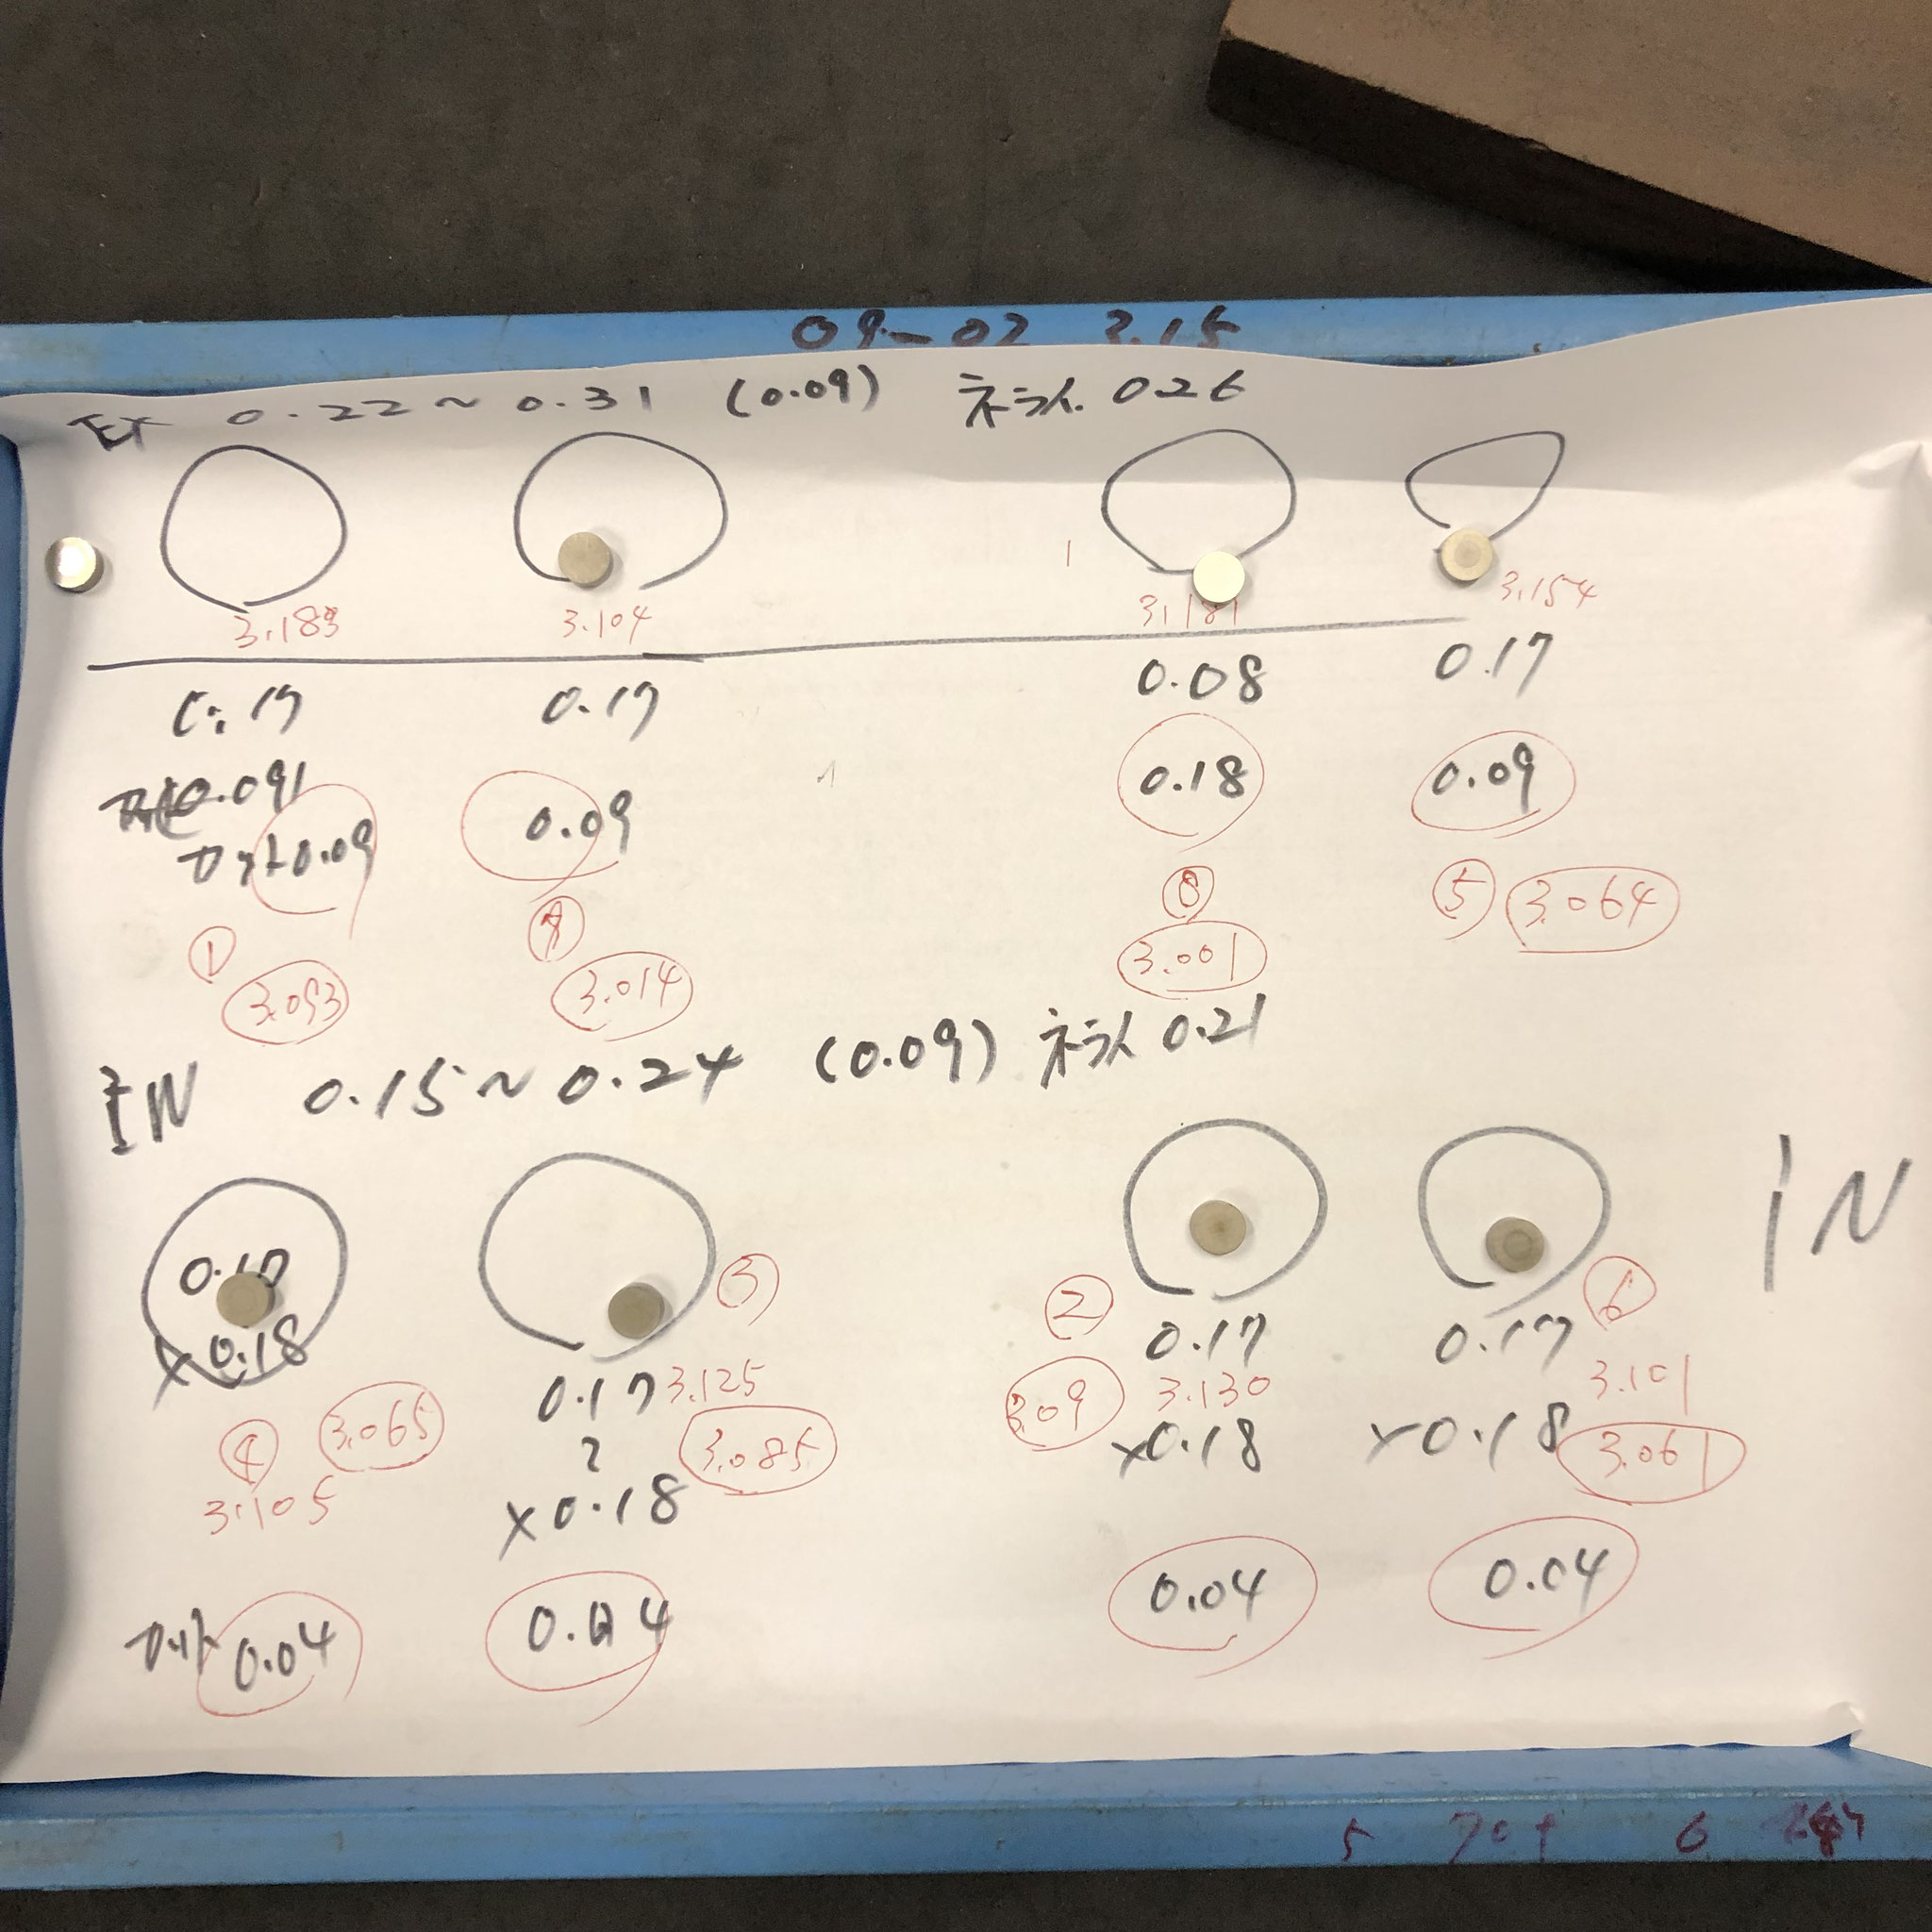 09-02 3.15
EX 0.22~0.31 (0.09) ネライ 0.26
3.183 3.104 3.181 3.154
0.17 0.17 0.08 0.17
0.091
カット0.09 0.09 0.18 0.09
① 3.093
3.014
⑧ 3.001
⑤ 3.064
IN 0.15~0.24 (0.09) ネライ 0.21
IN
×0.18
④ 3.065
3.105
③
0.17 3.125
?
3.085
×0.18
② 0.17
3.09 3.130
×0.18
⑥
0.17
3.101
×0.18 3.061
カット 0.04 0.04 0.04
5 6